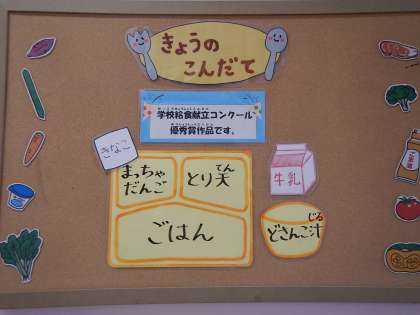 きょうの
こんだて
学校給食献立コンクール
優秀賞作品です。
きなこ
まっちゃ
だんご
とり天
てん
ごはん
牛乳
どさんこ汁
じる